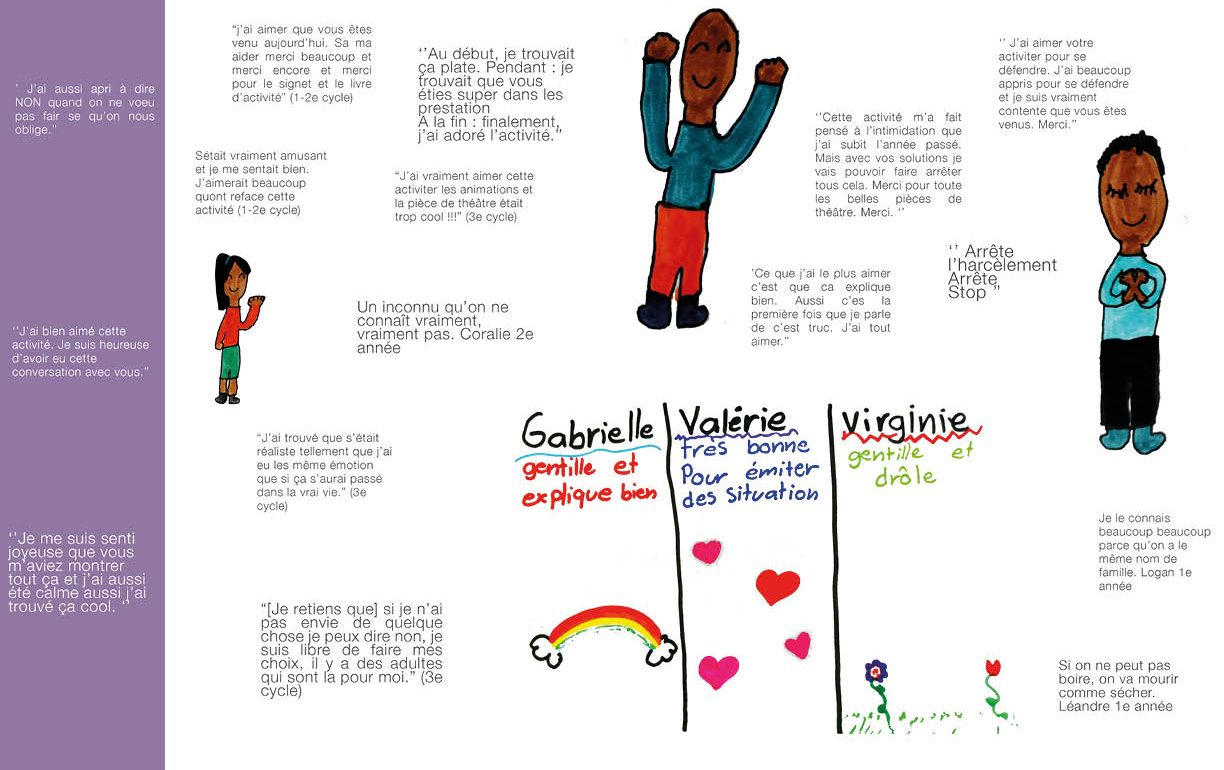 ‘ J’ai aussi apri à dire
NON quand on ne voeu
pas fair se qu’on nous
oblige.”
‘‘J’ai bien aimé cette
activité. Je suis heureuse
d’avoir eu cette
conversation avec vous.”
‘‘Je me suis senti
joyeuse que vous
m’aviez montrer
tout ça et j’ai aussi
été calme aussi j’ai
trouvé ça cool. ‘‘
“j’ai aimer que vous êtes
venu aujourd’hui. Sa ma
aider merci beaucoup et
merci encore et merci
pour le signet et le livre
d’activité” (1-2e cycle)
‘‘Au début, je trouvait
ça plate. Pendant : je
trouvait que vous
éties super dans les
prestation
A la fin : finalement,
j’ai adoré l’activité.”
Sétait vraiment amusant
et je me sentait bien.
J’aimerait beaucoup
quont reface cette
activité (1-2e cycle)
“J’ai vraiment aimer cette
activiter les animations et
la pièce de théâtre était
trop cool !!!” (3e cycle)
Un inconnu qu’on ne
connaît vraiment,
vraiment pas. Coralie 2e
année
“J’ai trouvé que s’était
réaliste tellement que j’ai
eu les même émotion
que si ça s’aurai passé
dans la vrai vie.” (3e
cycle)
“[Je retiens que] si je n’ai
pas envie de quelque
chose je peux dire non, je
suis libre de faire mes
choix, il y a des adultes
qui sont la pour moi.” (3e
cycle)
‘‘ J’ai aimer votre
activiter pour se
défendre. J’ai beaucoup
appris pour se défendre
et je suis vraiment
contente que vous êtes
venus. Merci.”
‘‘Cette activité m’a fait
pensé à l’intimidation que
j’ai subit l’année passé.
Mais avec vos solutions je
vais pouvoir faire arrêter
tous cela. Merci pour toute
les belles pièces de
théâtre. Merci. ‘‘
‘‘ Arrête
l’harcèlement
Arrête
Stop ”
‘Ce que j’ai le plus aimer
c’est que ca explique
bien. Aussi c’es la
première fois que je parle
de c’est truc. J’ai tout
aimer.”
Gabrielle
gentille et
explique bien
Valérie
très bonne
Pour émiter
des Situation
Virginie
gentille et
drôle
Je le connais
beaucoup beaucoup
parce qu’on a le
même nom de
famille. Logan 1e
année
Si on ne peut pas
boire, on va mourir
comme sécher.
Léandre 1e année